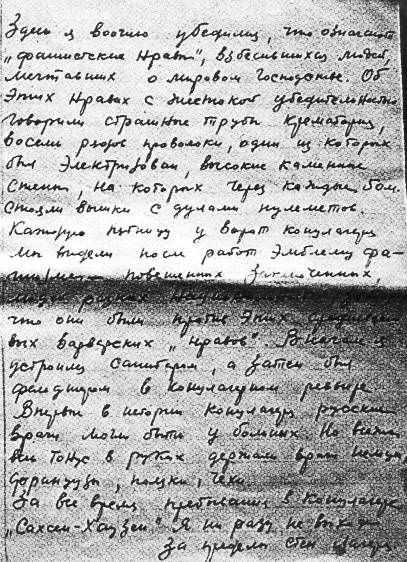 Здесь я воочию убедились, что означают
„фашистские нравы", взбесившихся людей,
мечтавших о мировом господстве. Об
этих нравах с жестокой убедительностью
говорили страшные трубы крематория,
восемь рядов проволоки, один из которых
был электризован, высокие каменные
стены, на которых через каждые
стояли вышки с дулами пулеметов.
Каждую пятницу у ворот концлагеря
мы видели после работ эмблему фа-
повешенных заключенных,
людей разных
что они были против этих
вых варварских „нравов". Вначале я
устроился санитаром, а затем был
фельдшером в концлагерном ревире.
Впервые в истории концлагеря русские
врачи могли быть у больных. Но
в руках держали врачи немцы,
французы, поляки, чехи.
За все время пребывания в концлагере
„Саксен-Хаузен" я ни разу не выходил
за пределы стен лагеря.